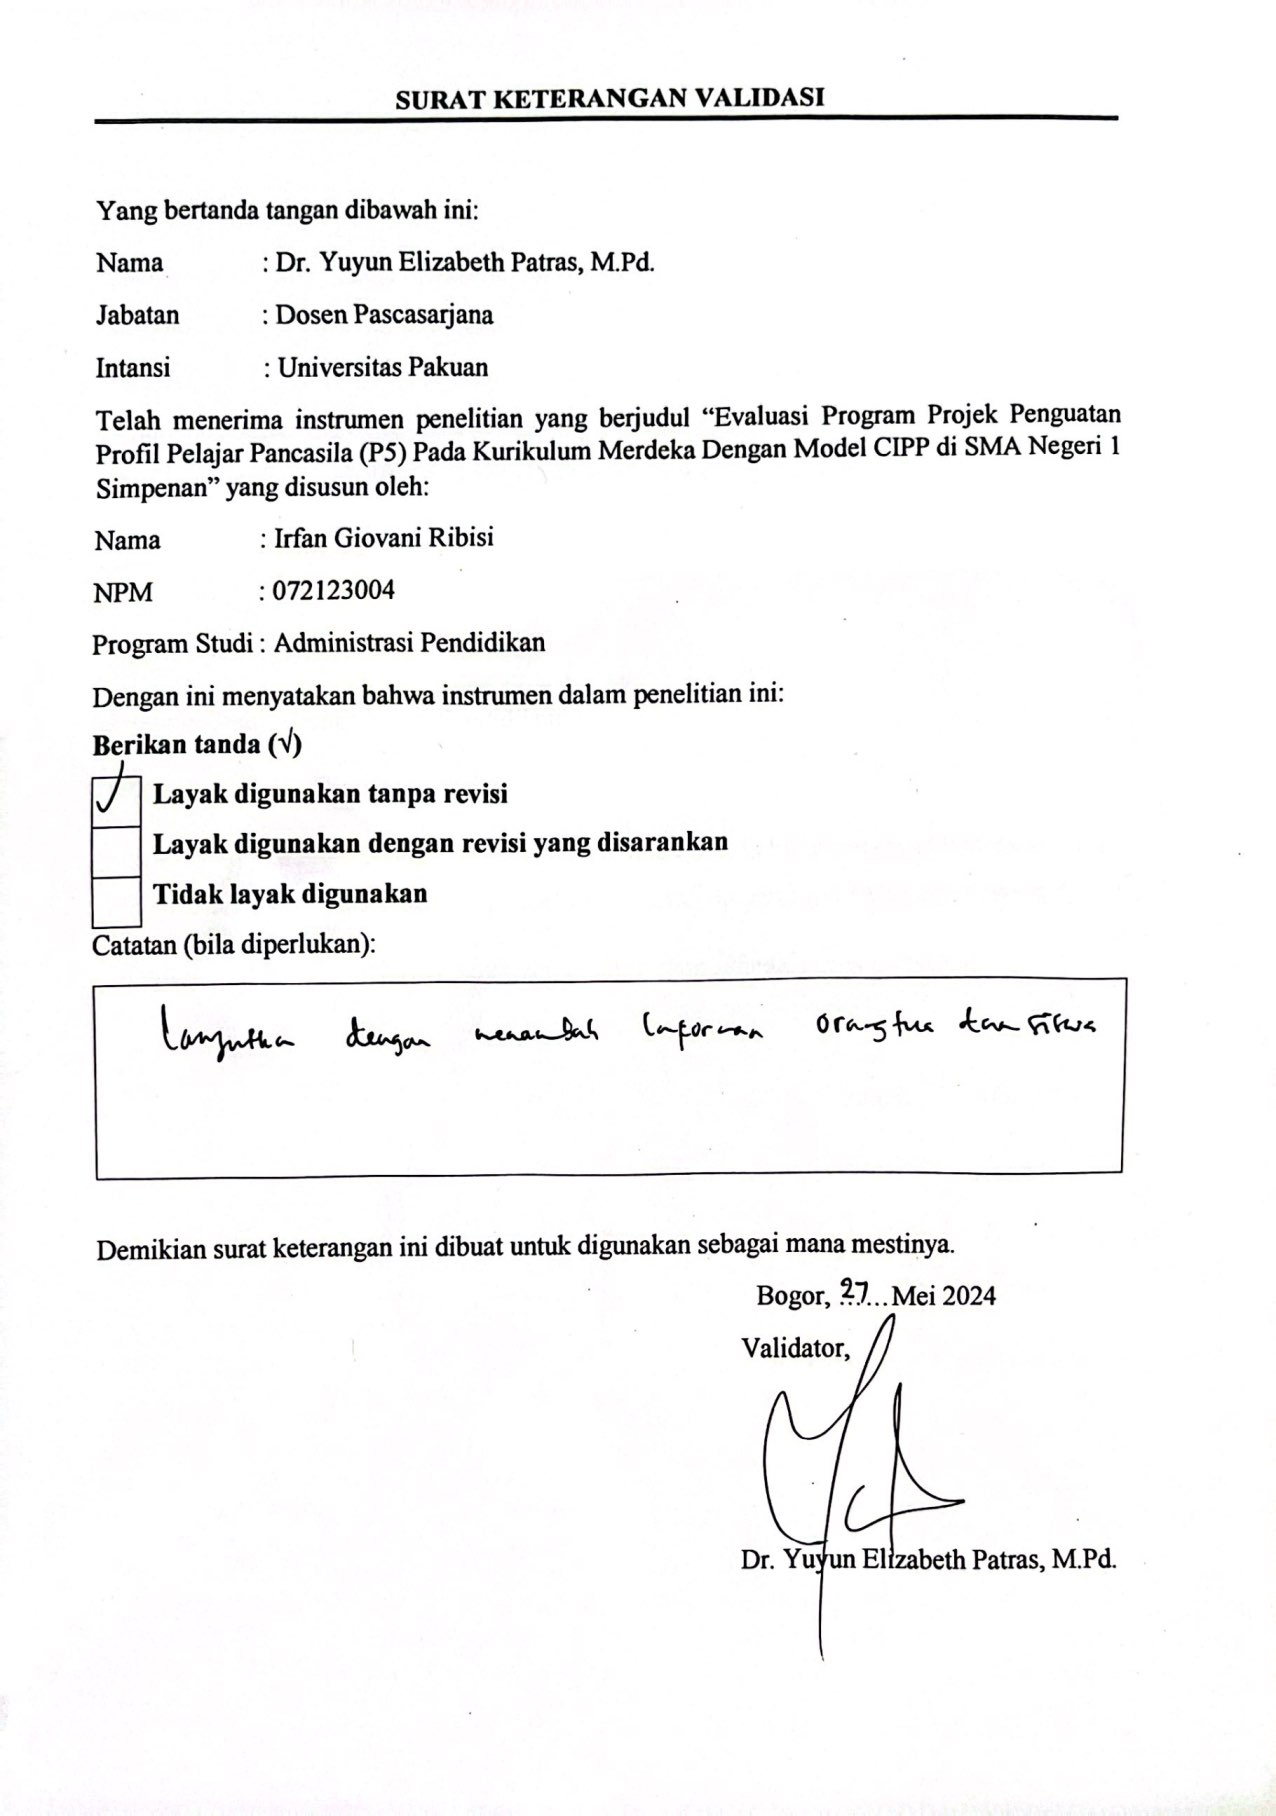 SURAT KETERANGAN VALIDASI
Yang bertanda tangan dibawah ini:
Nama : Dr. Yuyun Elizabeth Patras, M.Pd.
Jabatan : Dosen Pascasarjana
Intansi : Universitas Pakuan
Telah menerima instrumen penelitian yang berjudul “Evaluasi Program Projek Penguatan
Profil Pelajar Pancasila (P5) Pada Kurikulum Merdeka Dengan Model CIPP di SMA Negeri 1
Simpenan” yang disusun oleh:
Nama : Irfan Giovani Ribisi
NPM : 072123004
Program Studi : Administrasi Pendidikan
Dengan ini menyatakan bahwa instrumen dalam penelitian ini:
Berikan tanda (√)
✓ Layak digunakan tanpa revisi
Layak digunakan dengan revisi yang disarankan
Tidak layak digunakan
Catatan (bila diperlukan):
dengan menambah orangtua dan siswa
Demikian surat keterangan ini dibuat untuk digunakan sebagai mana mestinya.
Bogor, 27...Mei 2024
Validator,
Dr. Yuyun Elizabeth Patras, M.Pd.